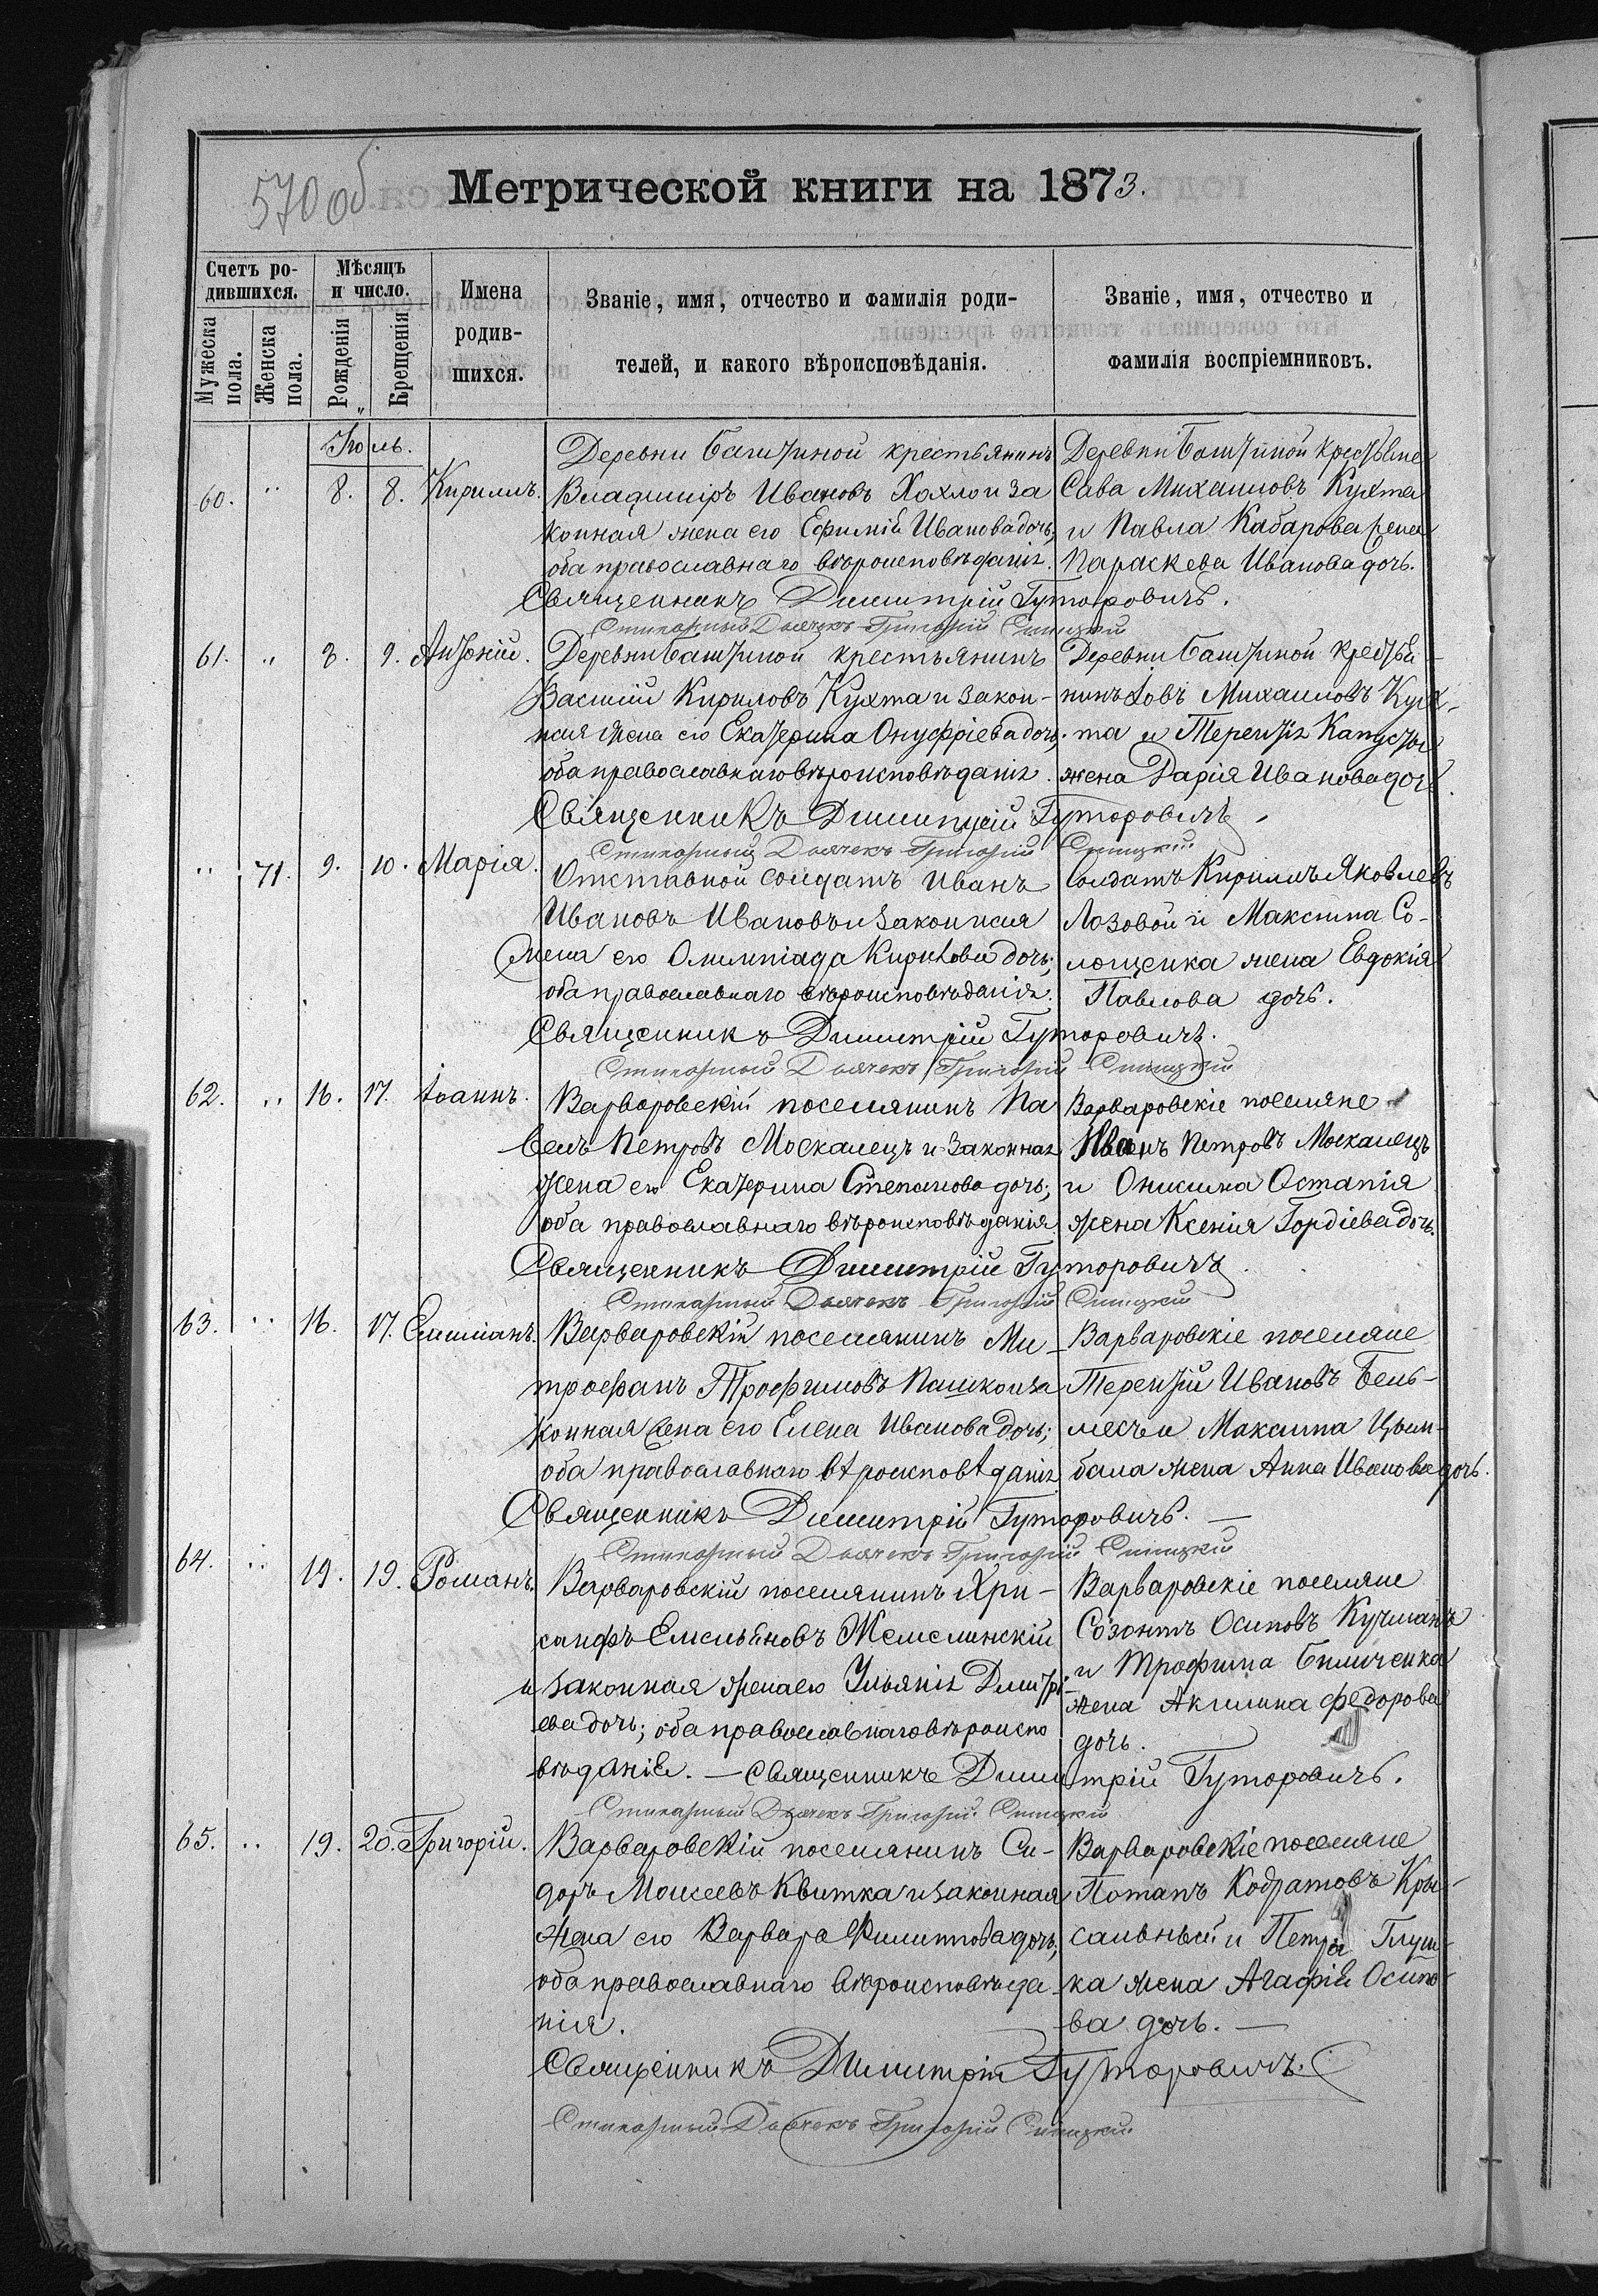 570 об
Метрической книги на 1873.
Счетъ ро-
дившихся.
Мѣсяцъ
и число.
Мужеска
пола.
Женска
пола.
Рожденія
Крещенія
Имена
родив-
шихся.
Званіе, имя, отчество и фамилія роди-
телей, и какого вѣроисповѣданія.
Званіе, имя, отчество и
фамилія воспріемниковъ.
Іюль.
60. " 8. 8. Кириллъ.
Деревни Баштиной крестьянинъ
Владиміръ Ивановъ Хохло и за
конная жена его Ефимія Иванова дочь;
оба православнаго вѣроисповѣданія.
Деревни Баштиной крестьяне
Сава Михаиловъ Кухта
и Павла Кабарова жена
Параскева Иванова дочь.
Священникъ Димитрій Гуторовичъ.
Стихарный Дьячекъ Григорій
61. " 8. 9. Антоній.
Деревни Баштиной крестьянинъ
Василій Кириловъ Кухта и закон-
ная жена его Екатерина Онуфріева дочь;
оба православнаго вѣроисповѣданія.
Деревни Баштиной крестья-
нинъ Іовъ Михаиловъ Кух-
та и Терентія Капусты
жена Дарія Иванова дочь.
Священникъ Димитрій Гуторовичъ
Стихарный Дьячекъ Григорій
" 71. 9. 10. Марія.
Отставной солдатъ Иванъ
Ивановъ Ивановъ и законная
жена его Олимпіада Кирилова дочь;
оба православнаго вѣроисповѣданія.
Солдатъ Кириллъ Яковлевъ
Лозовой и Максима Со-
лощенка жена Евдокія
Павлова дочь.
Священникъ Димитрій Гуторовичъ.
Стихарный Дьячекъ Григорій
62. " 16. 17. Іоаннъ.
Варваровскій поселянинъ Па
велъ Петровъ Москалецъ и законная
жена его Екатерина Степанова дочь;
оба православнаго вѣроисповѣданія
Варваровскіе поселяне
Иванъ Петровъ Москалецъ
и Онисима Остапія
жена Ксенія Гордіева дочь.
Священникъ Димитрій Гуторовичъ.
Стихарный Дьячекъ Григорій
63. " 16. 17. Емиліанъ.
Варваровскій поселянинъ Ми-
трофанъ Трофимовъ Пашко и за
конная жена его Елена Иванова дочь;
оба православнаго вѣроисповѣданія
Варваровскіе поселяне
Терентій Ивановъ Бель-
месъ и Максима Цым-
бала жена Анна Иванова дочь.
Священникъ Димитрій Гуторовичъ. —
Стихарный Дьячекъ Григорій
64. " 19. 19. Романъ.
Варваровскій поселянинъ Хри-
санфъ Емельяновъ Жемелинскій
и законная жена его Ульянія Димітрі-
ева дочь; оба православнаго вѣроиспо
вѣданія. — Священникъ Димитрій Гуторовичъ.
Варваровскіе поселяне
Созонтъ Осиповъ Кучманъ
и Трофима Биличенка
жена Акилина Федорова
дочь.
Стихарный Дьячекъ Григорій
65. " 19. 20. Григорій.
Варваровскій поселянинъ Си-
доръ Моисеевъ Квитка и законная
жена его Варвара Филиппова дочь,
оба православнаго вѣроисповѣда-
нія.
Варваровскіе поселяне
Потапъ Кодратовъ Кры-
сальный и Петра Глуш-
ка жена Агафія Осипо-
ва дочь. —
Священникъ Димитрій Гуторовичъ.
Стихарный Дьячекъ Григорій